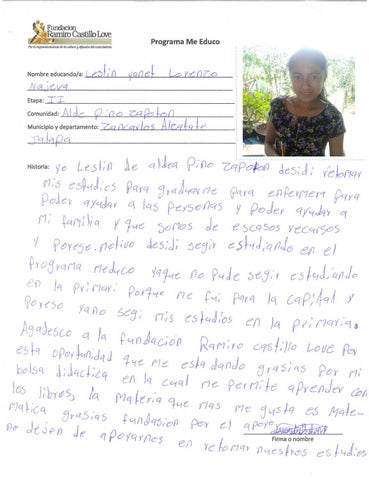 Fundación
Ramiro Castillo Love
Programa Me Educo
Nombre educando/a: Leslin yanet Lorenzo
Najera
Etapa: II
Comunidad: Alde Pino Zapoton
Municipio y departamento: Zancarlos Alzatate
Jalapa
Historia: yo Leslin de aldea Pino Zapoton desidi retomar
mis estudios para graduarme para enfermera para
poder ayudar a las personas y poder ayudar a
mi familia y que somos de escasos recursos
y porese motivo desidi segir estudiando en el
programa meduco yaque no pude segir estudiando
en la primari porque me fui para la capital y
poreso yano segi mis estudios en la primaria.
Agadesco a la fundacion Ramiro castillo Love por
esta oportunidad que me esta dando grasias por mi
bolsa didactica en la cual me permite aprender con
los libros, la materia que mas me gusta es Mate-
matica grasias fundasion por el apoyo
no dejen de apoyarnos en retomar nuestros estudios
Firma o nombre